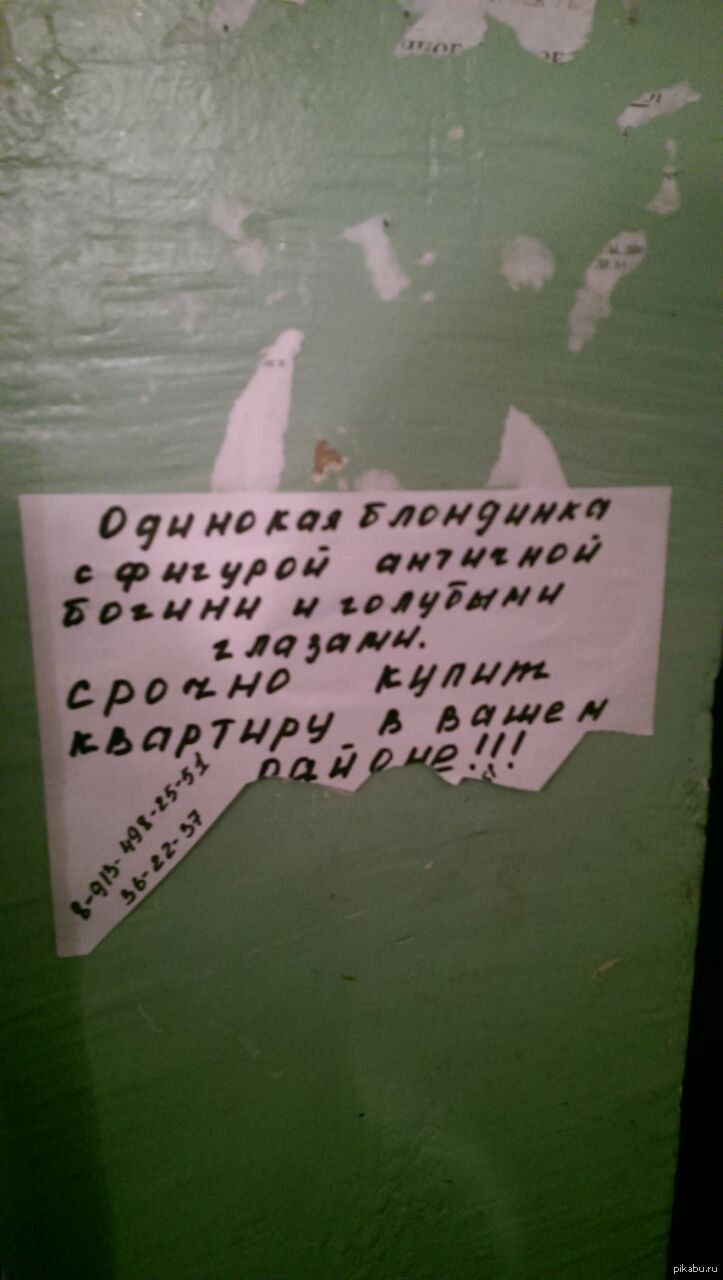 Одинокая блондинка
с фигурой античной
богини и голубыми
глазами.
срочно купит
квартиру в вашем
районе!!!
8-913-498-25-51
36-22-37
pikabu.ru